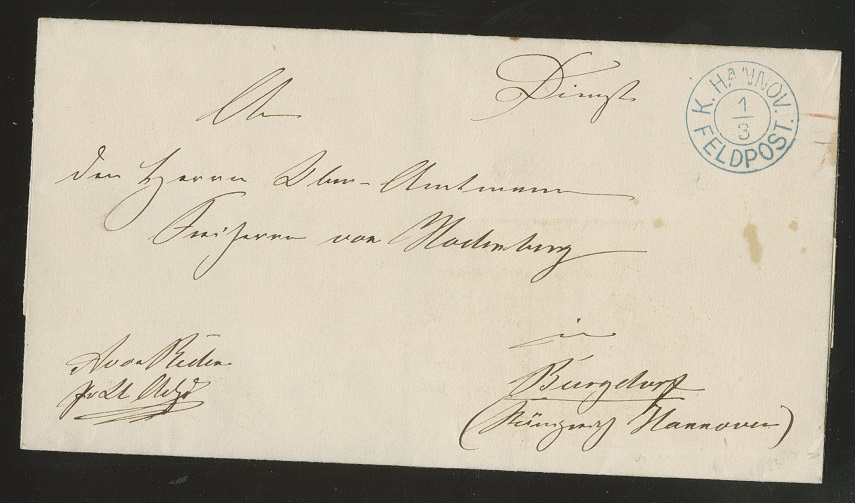 K. HANNOV. FELDPOST.
1
3
Dienst
An
den Herrn Ober-Amtmann
Freiherrn von Rodenberg
in
Burgdorf
(Königreich Hannover)
von Reden
Pr Lt